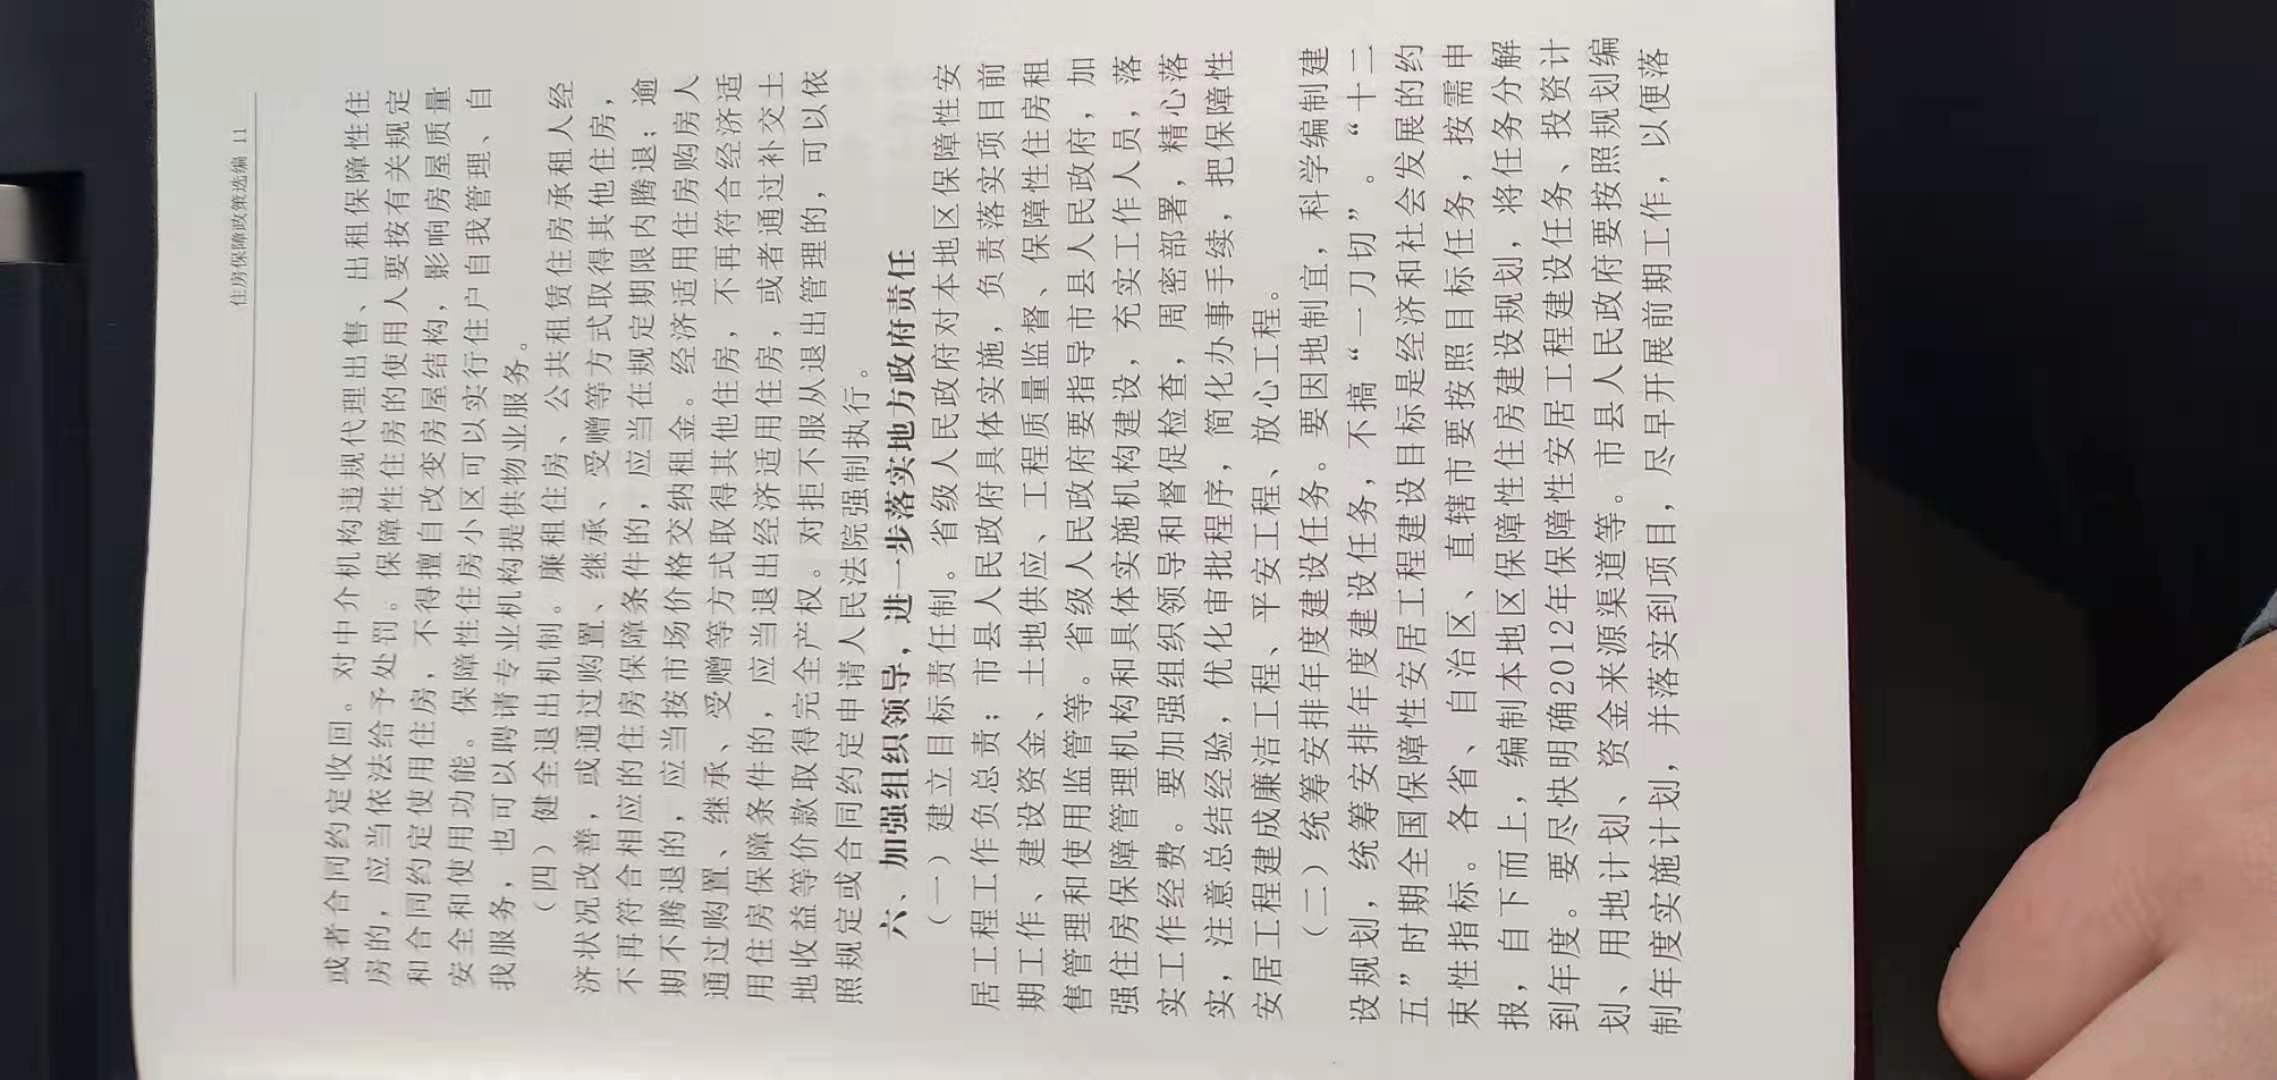 住房保障政策选编 11
或者合同约定收回。对中介机构违规代理出售、出租保障性住
房的，应当依法给予处罚。保障性住房的使用人要按有关规定
和合同约定使用住房，不得擅自改变房屋结构，影响房屋质量
安全和使用功能。保障性住房小区可以实行住户自我管理、自
我服务，也可以聘请专业机构提供物业服务。
（四）健全退出机制。廉租住房、公共租赁住房承租人经
济状况改善，或通过购置、继承、受赠等方式取得其他住房，
不再符合相应的住房保障条件的，应当在规定期限内腾退；逾
期不腾退的，应当按市场价格交纳租金。经济适用住房购房人
通过购置、继承、受赠等方式取得其他住房，不再符合经济适
用住房保障条件的，应当退出经济适用住房，或者通过补交土
地收益等价款取得完全产权。对拒不服从退出管理的，可以依
照规定或合同约定申请人民法院强制执行。
六、加强组织领导，进一步落实地方政府责任
（一）建立目标责任制。省级人民政府对本地区保障性安
居工程工作负总责；市县人民政府具体实施，负责落实项目前
期工作、建设资金、土地供应、工程质量监督、保障性住房租
售管理和使用监管等。省级人民政府要指导市县人民政府，加
强住房保障管理机构和具体实施机构建设，充实工作人员，落
实工作经费。要加强组织领导和督促检查，周密部署，精心落
实，注意总结经验，优化审批程序，简化办事手续，把保障性
安居工程建成廉洁工程、平安工程、放心工程。
（二）统筹安排年度建设任务。要因地制宜，科学编制建
设规划，统筹安排年度建设任务，不搞“一刀切”。“十二
五”时期全国保障性安居工程建设目标是经济和社会发展的约
束性指标。各省、自治区、直辖市要按照目标任务，按需申
报，自下而上，编制本地区保障性住房建设规划，将任务分解
到年度。要尽快明确2012年保障性安居工程建设任务、投资计
划、用地计划、资金来源渠道等。市县人民政府要按照规划编
制年度实施计划，并落实到项目，尽早开展前期工作，以便落